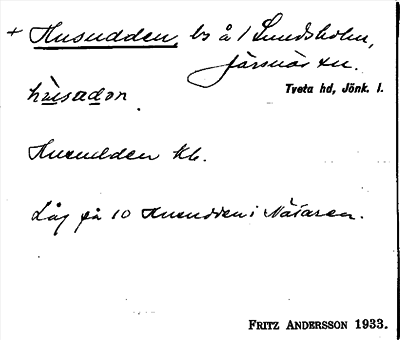 + Husudden, ls å 1 Sundsholm,
Järsnäs sn.
Tveta hd, Jönk. l.
hùsadon
Husudden kb.
Låg på 10 Husudden i Nätaren.
FRITZ ANDERSSON 1933.